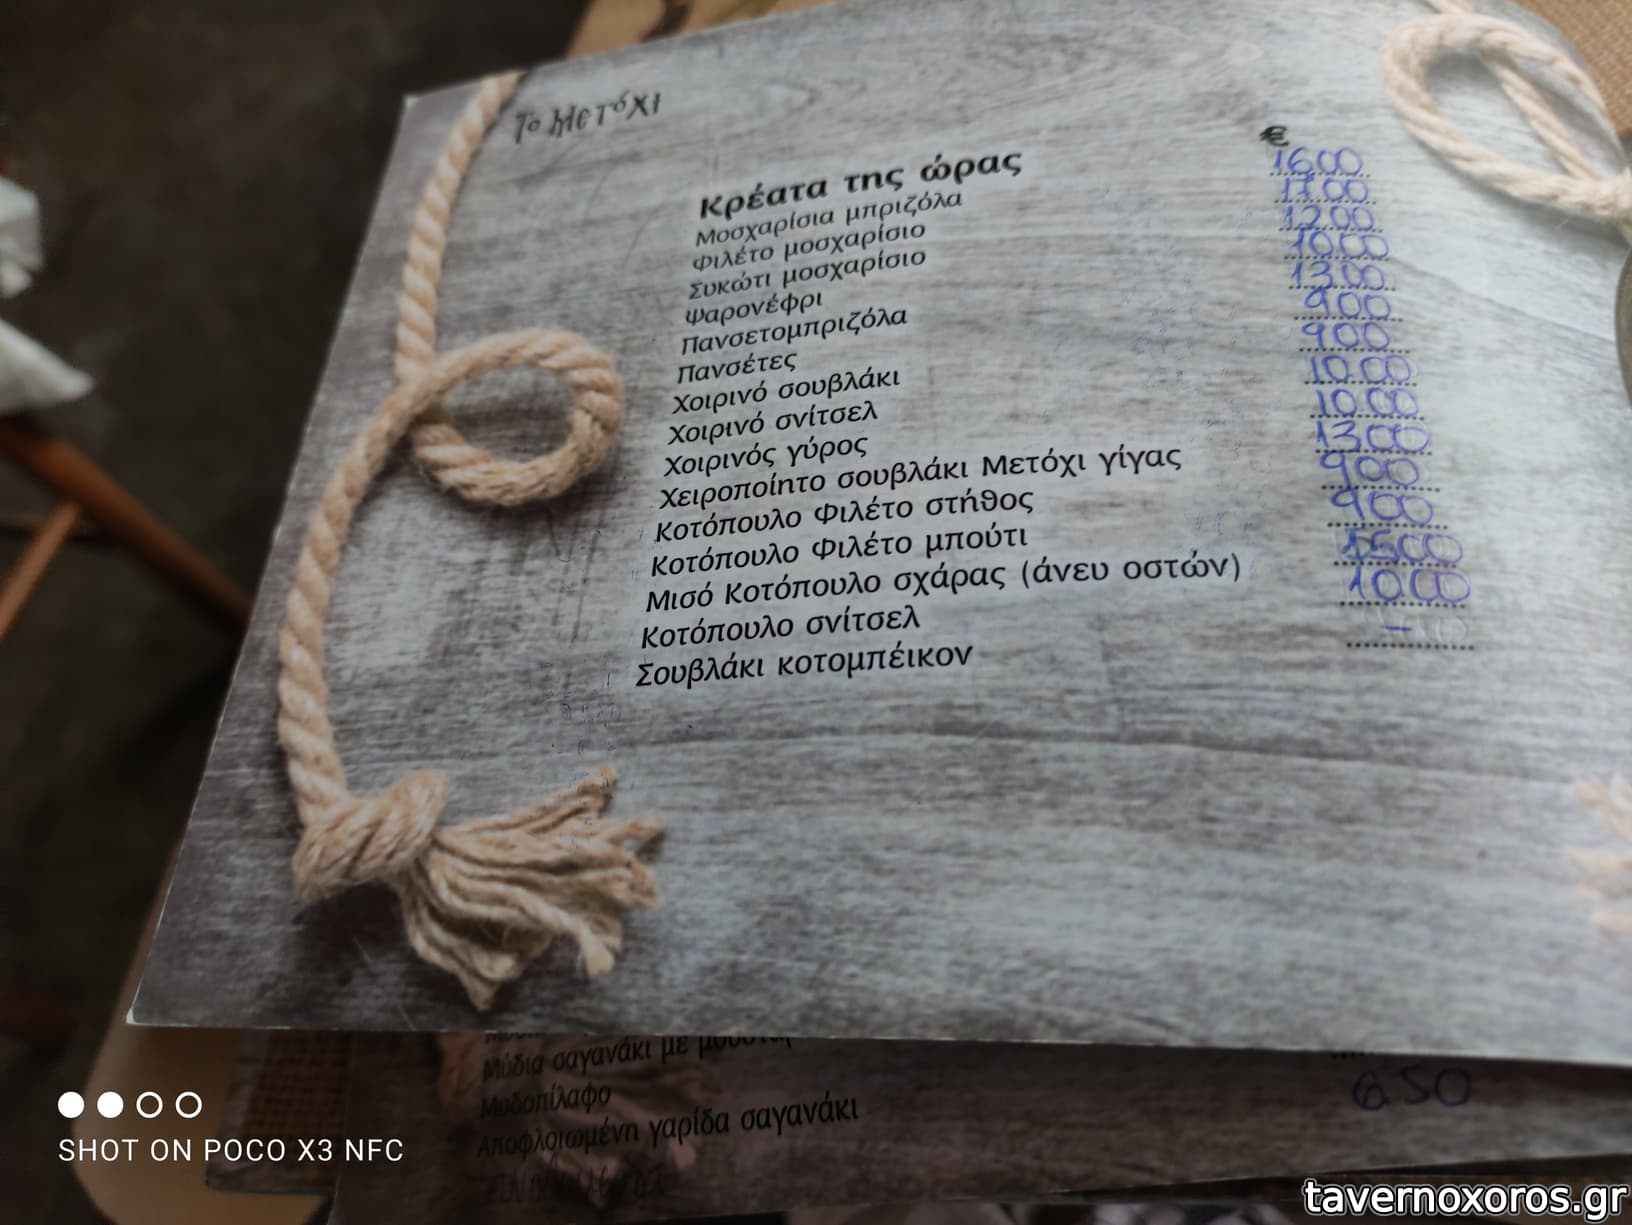 Το Μετόχι
€
Κρέατα της ώρας
Μοσχαρίσια μπριζόλα 16.00
Φιλέτο μοσχαρίσιο 17.00
Συκώτι μοσχαρίσιο 12.00
Ψαρονέφρι 10.00
Πανσετομπριζόλα 13.00
Πανσέτες 9.00
Χοιρινό σουβλάκι 9.00
Χοιρινό σνίτσελ 10.00
Χοιρινός γύρος 10.00
Χειροποίητο σουβλάκι Μετόχι γίγας 13.00
Κοτόπουλο Φιλέτο στήθος 9.00
Κοτόπουλο Φιλέτο μπούτι 9.00
Μισό Κοτόπουλο σχάρας (άνευ οστών) 15.00
Κοτόπουλο σνίτσελ 10.00
Σουβλάκι κοτομπέικον –
Μύδια σαγανάκι με
Μυδοπίλαφο 6.50
Αποφλοιωμένη γαρίδα σαγανάκι
SHOT ON POCO X3 NFC
tavernoxoros.gr